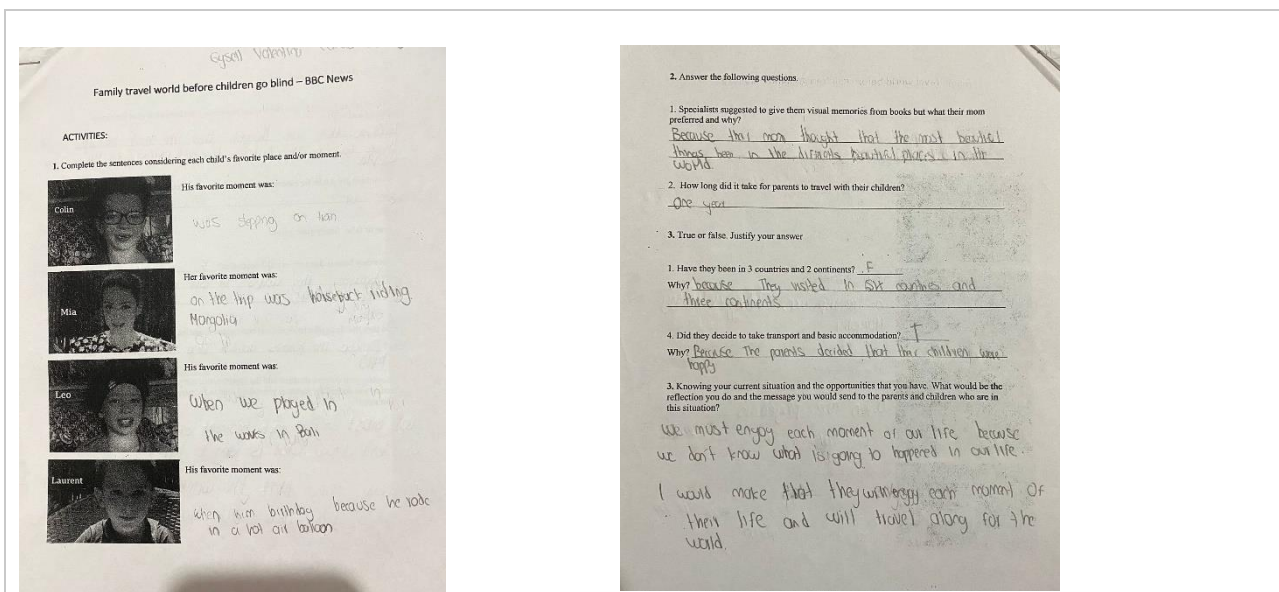 Gysell Valentin
Family travel world before children go blind – BBC News
ACTIVITIES:
1. Complete the sentences considering each child's favorite place and/or moment.
Colin
His favorite moment was:
was on
Mia
Her favorite moment was:
on the trip was horseback riding
Mongolia
Leo
His favorite moment was:
when we played in
the waves in Bali
Laurent
His favorite moment was:
when him birthday because he rode
in a hot air balloon
2. Answer the following questions.
1. Specialists suggested to give them visual memories from books but what their mom
preferred and why?
Because their mom thought that the most beautiful
things been in the beautiful places in the
world.
2. How long did it take for parents to travel with their children?
One year
3. True or false. Justify your answer
1. Have they been in 3 countries and 2 continents? F
Why? because They visited in six countries and
three continents
4. Did they decide to take transport and basic accommodation? T
Why? Because The parents decided that their children were
happy
3. Knowing your current situation and the opportunities that you have. What would be the
reflection you do and the message you would send to the parents and children who are in
this situation?
we must enjoy each moment of our life because
we don't know what is going to happened in our life.
I would make that they will each moment of
their life and will travel along for the
world.